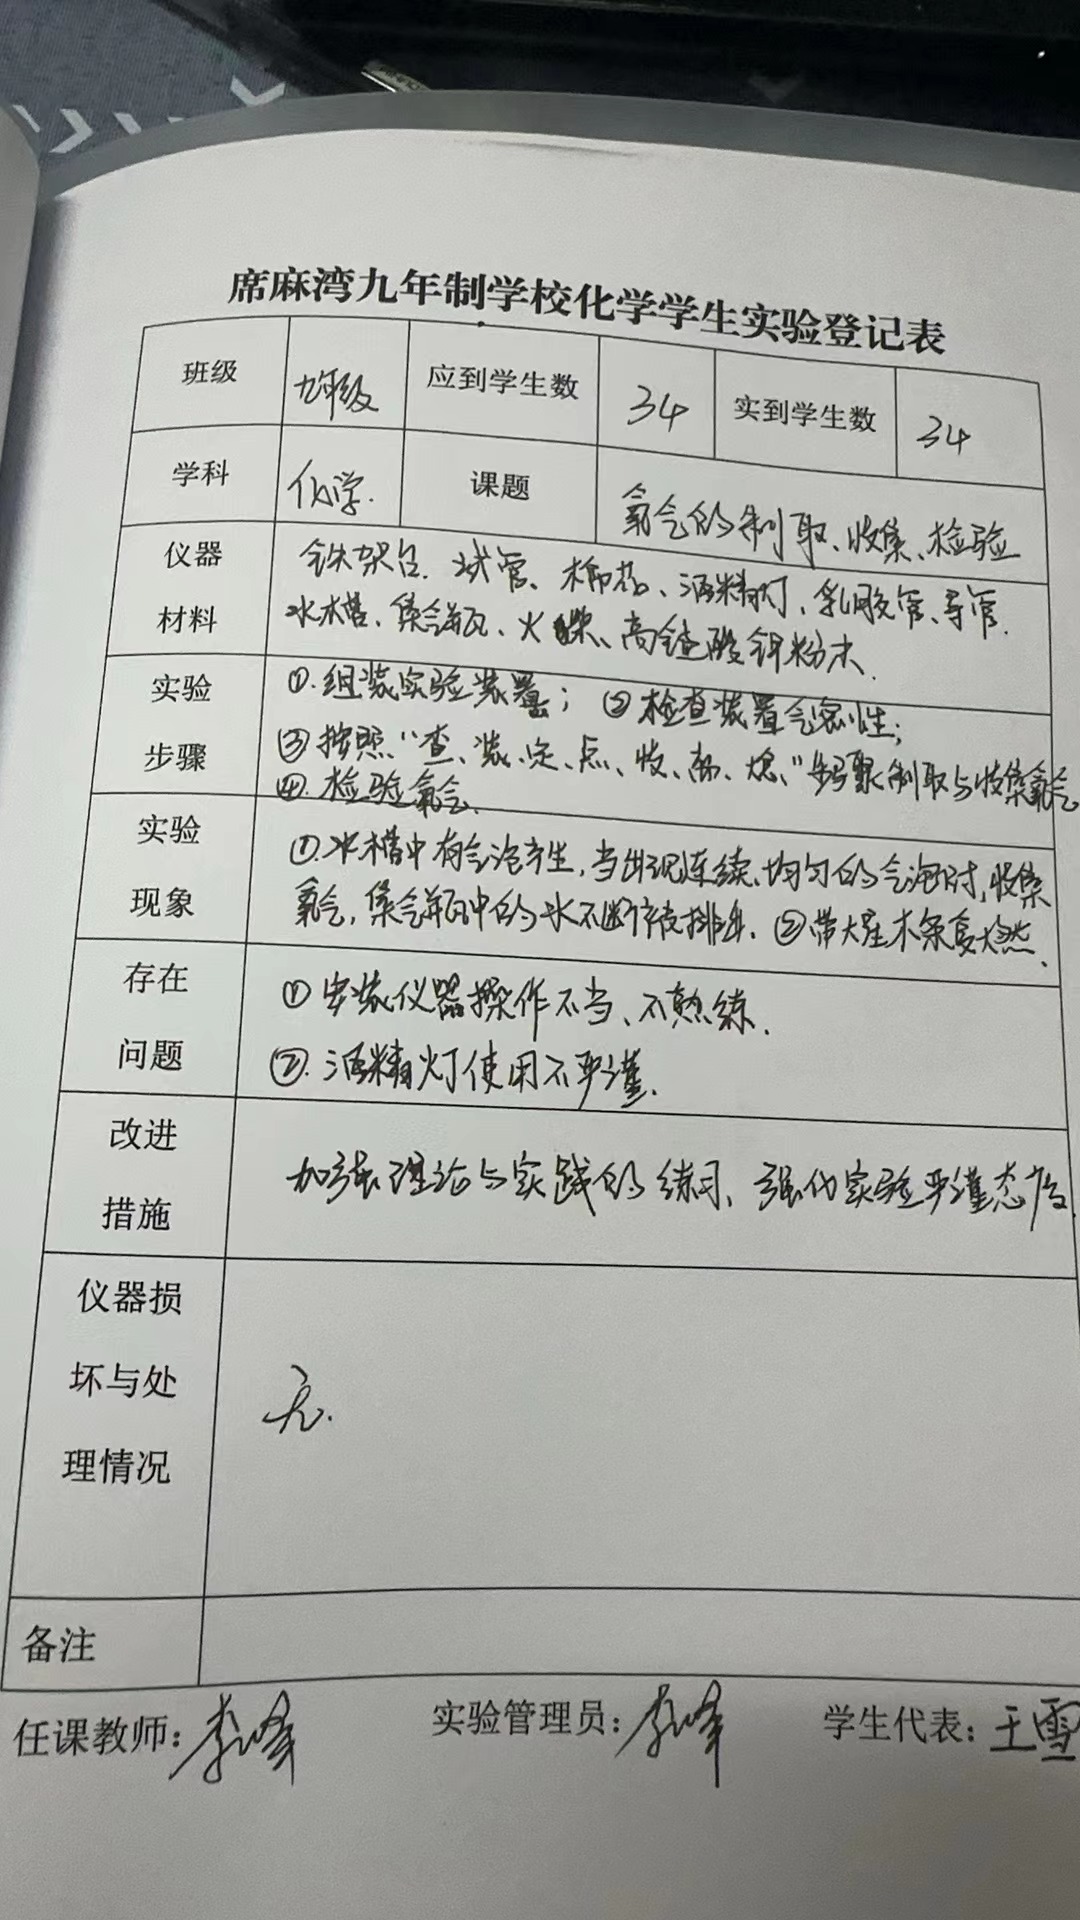 席麻湾九年制学校化学学生实验登记表
班级 九年级 应到学生数 34 实到学生数 34
学科 化学. 课题 氧气的制取、收集、检验
仪器 铁架台、试管、棉花、酒精灯、乳胶管、导管.
材料 水槽、集气瓶、火柴、高锰酸钾粉末.
实验 ①.组装实验装置; ②检查装置气密性;
步骤 ③按照“查、装、定、点、收、离、熄”步骤制取与收集氧气
④.检验氧气.
实验 ①.水槽中有气泡产生,当出现连续、均匀的气泡时,收集
现象 氧气,集气瓶中的水不断被排出. ②带火星木条复燃.
存在 ①安装仪器操作不当、不熟练.
问题 ②.酒精灯使用不严谨.
改进
措施 加强理论与实践的练习、强化实验严谨态度.
仪器损
坏与处 无.
理情况
备注
任课教师:李峰 实验管理员:李峰 学生代表:王雪